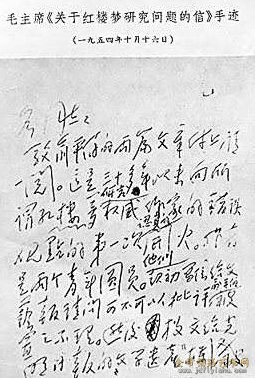 毛主席《关于红楼梦研究问题的信》手迹
(一九五四年十月十六日)
驳俞平伯的两篇文章附上,请
一阅。这是三十多年以来向所
谓红楼梦研究权威作家的错误
观点的第一次认真的开火。作者
是两个青年团员。他们起初写信给文
艺报请问可不可以批评
置之不理。投文给光
明日报的文学遗产